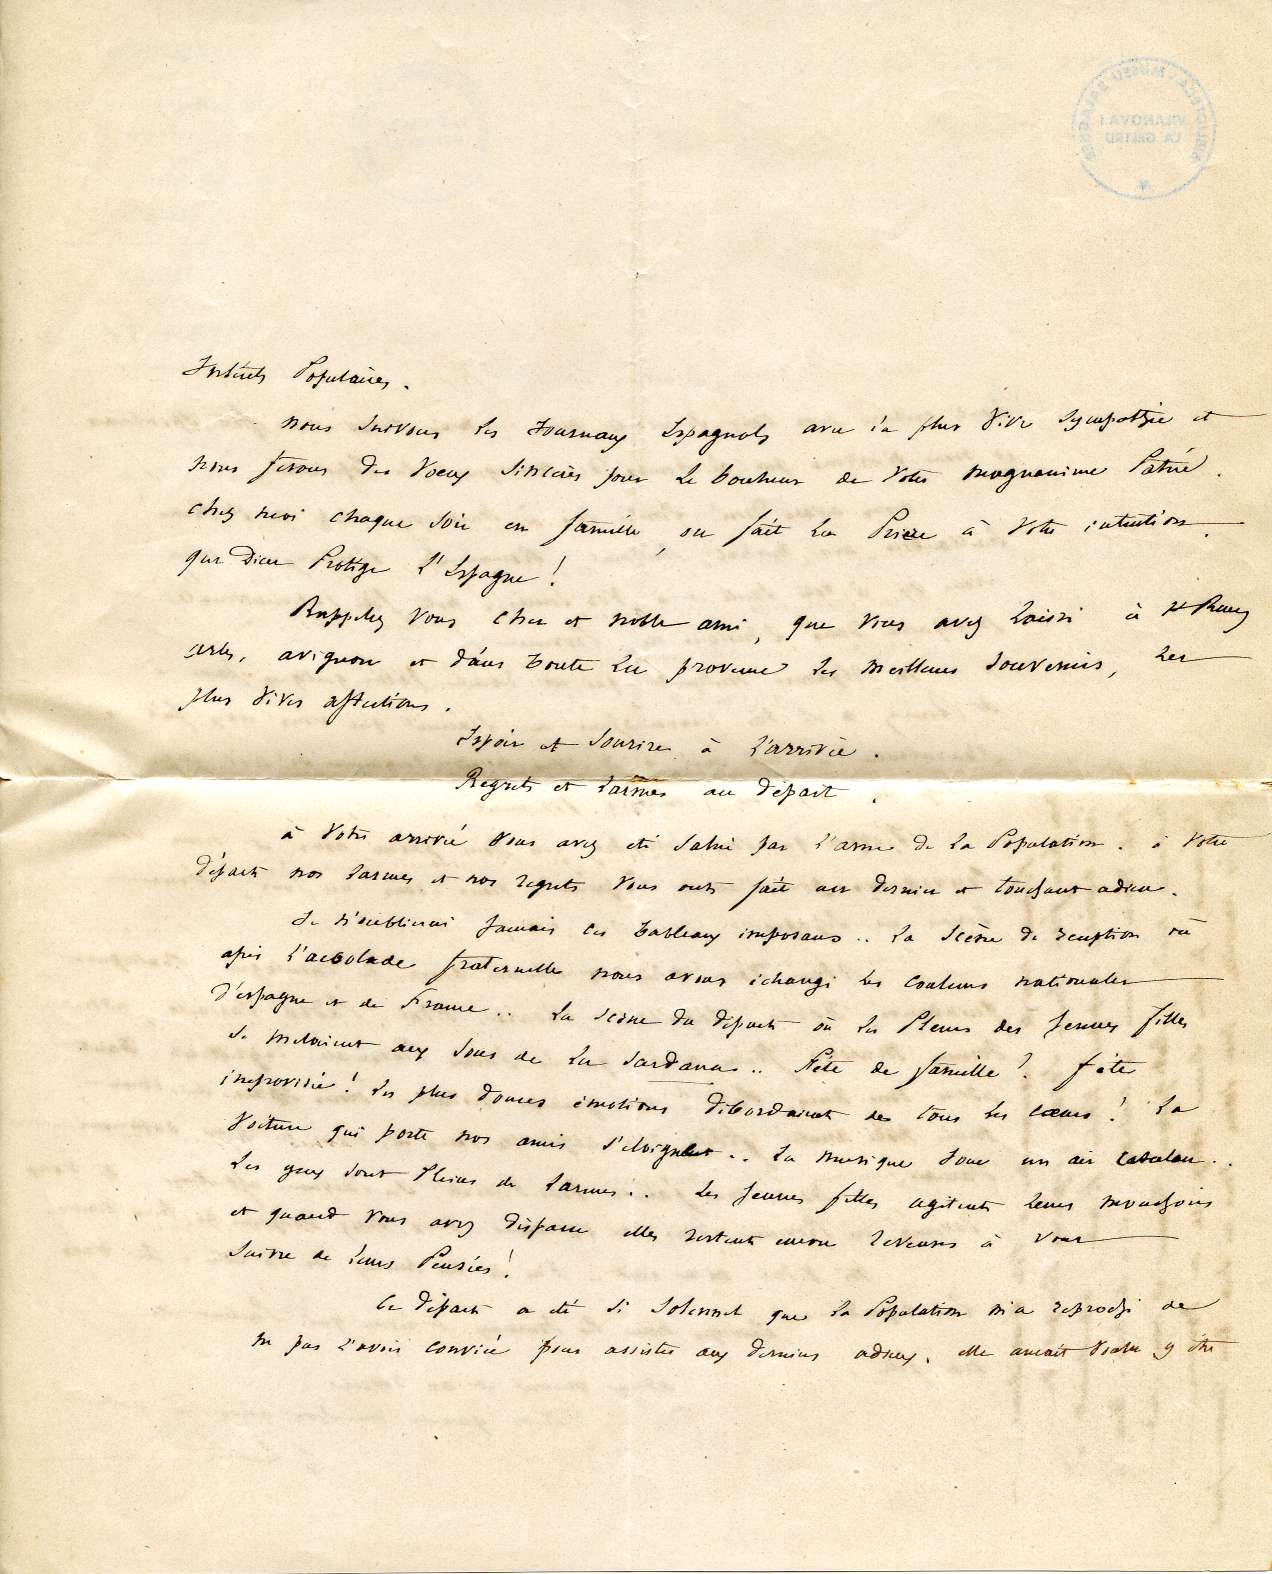 Intérêts Populaires.
nous suivons les Journaux Espagnols avec la plus vive sympathie et
nous ferons des voeux sincères pour le bonheur de votre magnanime Patrie.
chez moi chaque soir en famille, on fait la Prière à votre intention.
que Dieu Protège l'Espagne!
Rappelez vous cher et noble ami, que vous avez laissé à St Remy
arles, avignon et dans toute la provence les meilleurs souvenirs, les
plus vives affections.
Espoir et sourire à l'arrivée.
Regrets et larmes au départ.
à votre arrivée vous avez été salué par l'ame de la Population. à votre
départ nos larmes et nos regrets vous ont fait un dernier et touchant adieu.
Je n'oublierai jamais ces tableaux imposans.. la scène de reception où
après l'accolade fraternelle nous avons échangé les couleurs nationales
d'espagne et de France.. la scène du départ où les Pleurs des jeunes filles
se melaient aux sons de la Sardana.. Fête de famille! fête
improvisée! les plus douces émotions débordaient de tous les cœurs! la
voiture qui porte nos amis s'eloignait.. la musique joue un air catalan..
les yeux sont Pleins de larmes.. les jeunes filles agitent leurs mouchoirs
et quand vous avez disparu elles restent encore rêveuses à vous
suivre de leurs Pensées!
Ce départ a été si solennel que la Population m'a reproché de
ne pas l'avoir conviée pour assister aux derniers adieux. elle aurait voulu y être
VILANOVA I
LA GELTRU